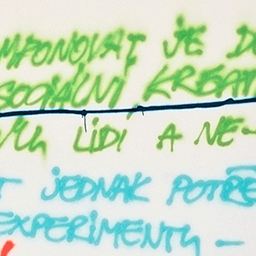 MPONOVAT JE D
SOCIÁLNÍ, KREAT
VÝCH LIDÍ A NE-
T JEDNAK POTŘE
EXPERIMENTY -